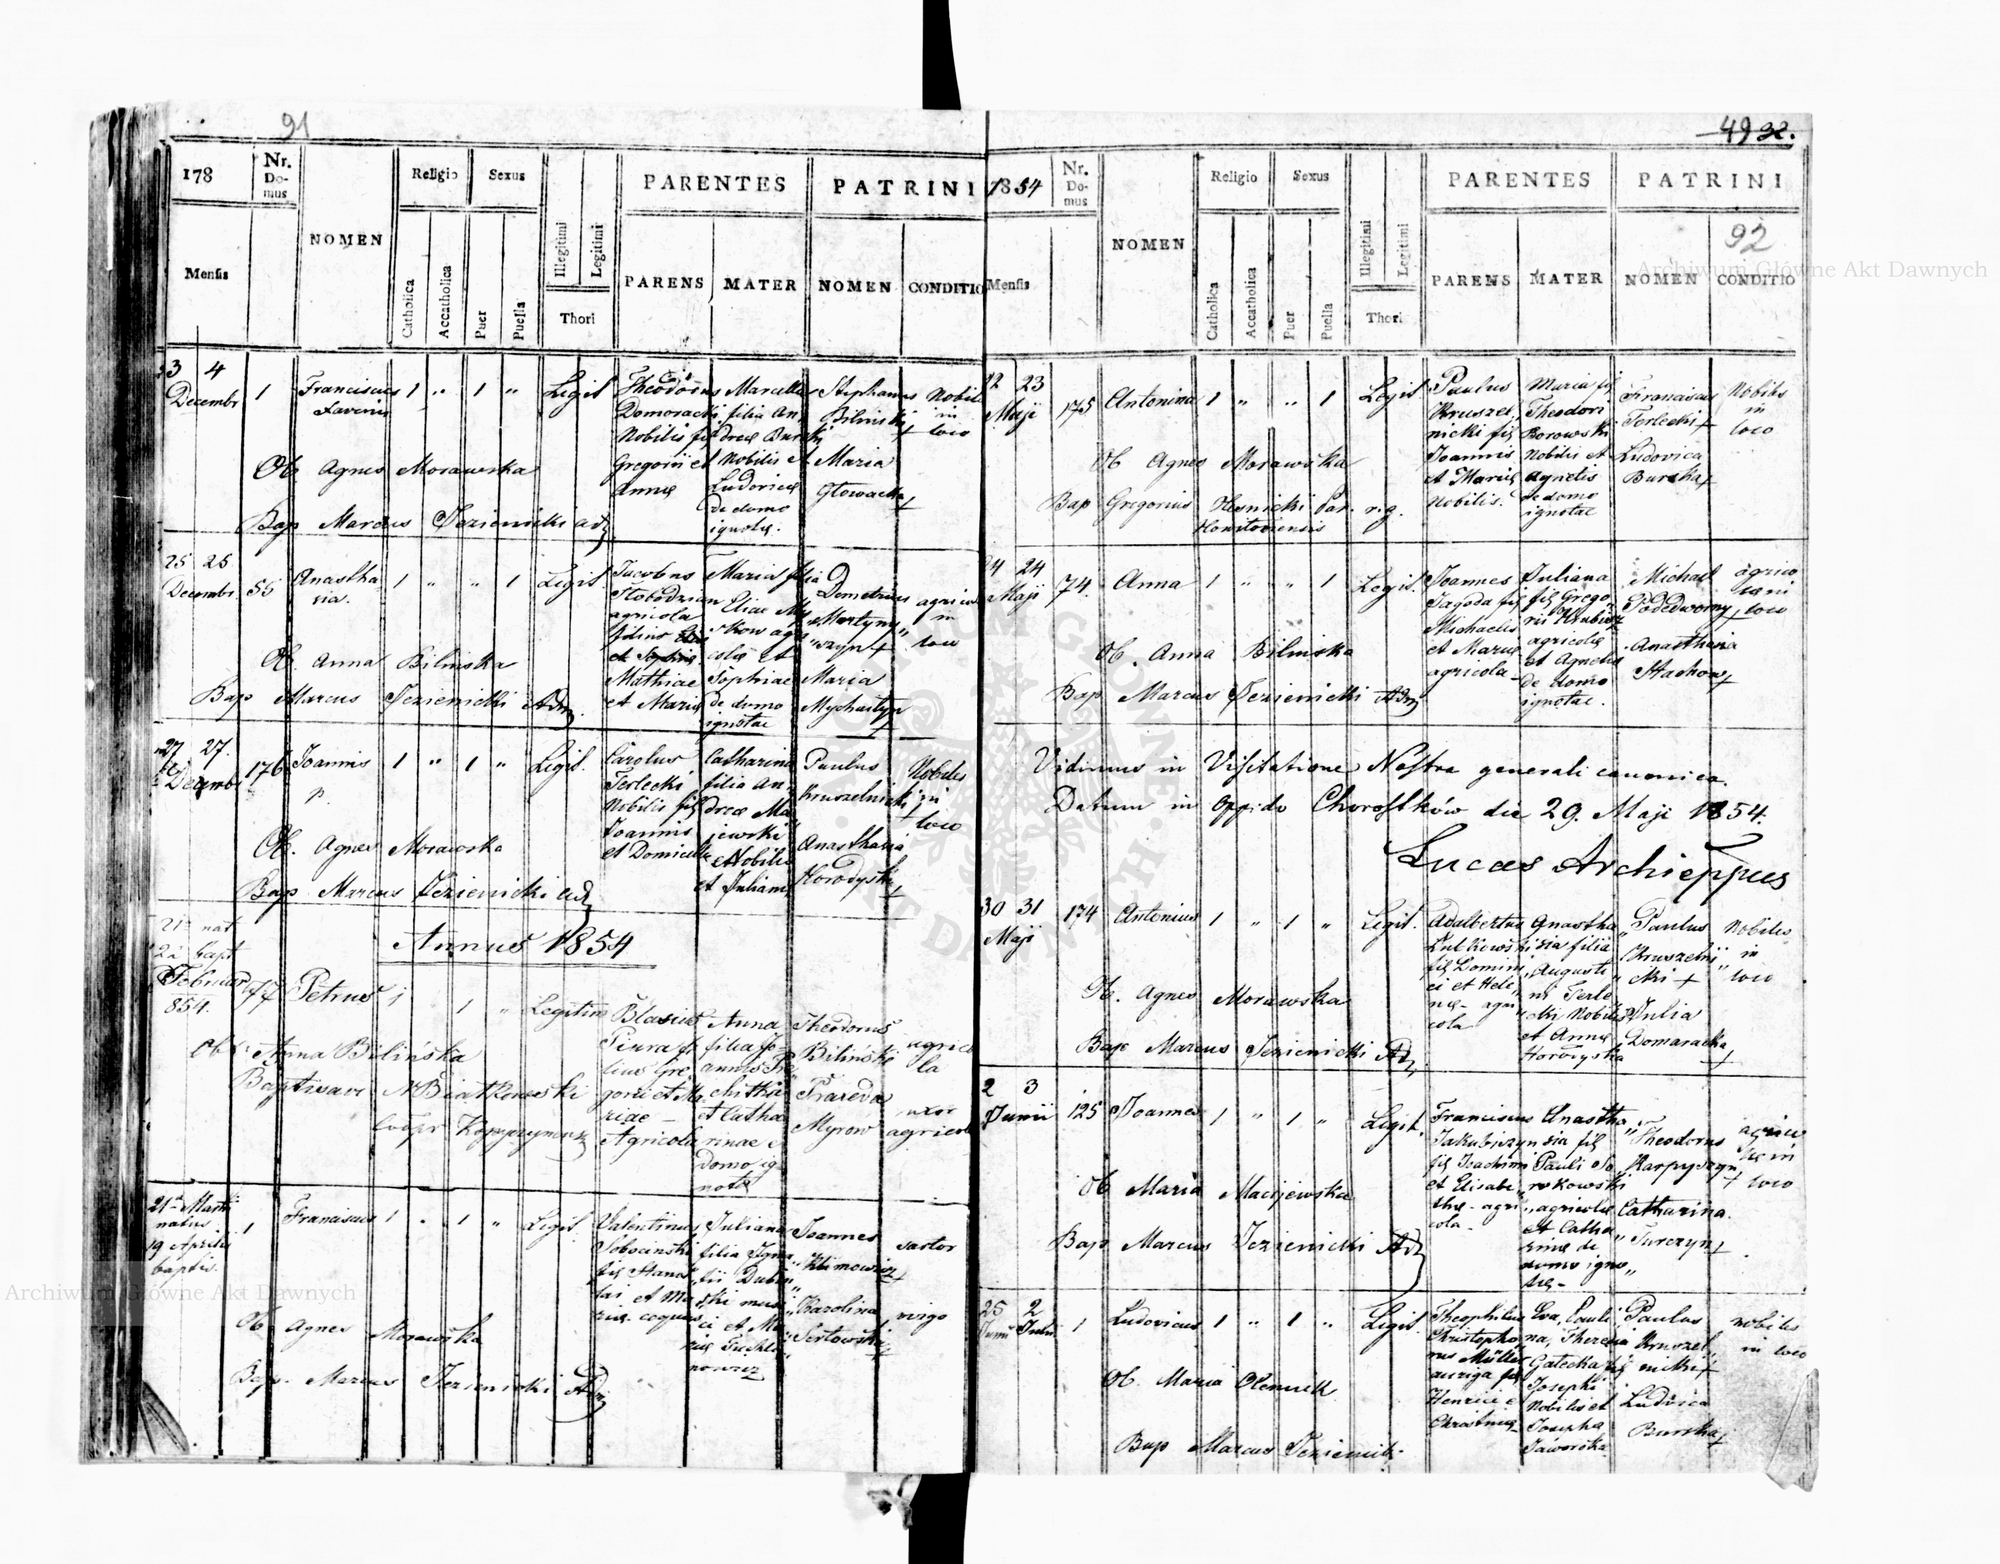 91
178
Nr. Domus
NOMEN
Religio
Sexus
PARENTES
PATRINI
Mensis
Catholica
Accatholica
Puer
Puella
Illegitimi
Legitimi
Thori
PARENS
MATER
NOMEN
CONDITIO
3 4
Decembr
1
Franciscus
1 " 1 "
Legit
Theodorus
Domoracki
Nobilis fil
Gregorii et
Annæ
Marcella
filia An
dreæ Burski
Nobilis et
Ludovicæ
de domo
ignotæ.
Stephanus
Bilinski +
Maria
Głowacka +
Nobil
in
loco
Ob Agnes Morawska
Bap Marcus Jezienicki adm
25 25
Decembr.
55
Anastha
sia.
1 " " 1
Legit.
Jacobus
Słobodzian
agricola
filius
Mathiae
et Mariæ
Maria filia
Eliae
agri
colæ et
Sophiae
de domo
ignotae
Demetrius
Martyny
szyn +
Maria
Mychaszyn
agricolæ
in
loco
Ob. Anna Bilinska
Bap Marcus Jezienicki Adm
27 27.
Decembr
176
Joannes
1 " 1 "
Legit.
Carolus
Terlecki
Nobilis fil
Joannis
et Domicellæ
Catharina
filia An
dreæ Ma
jewski
Nobilis
et Julianæ
Paulus
Kruszelnicki +
Anasthasia
Horodyska +
Nobiles
in
loco
Ob. Agnes Morawska
Bap Marcus Jezienicki adm
Annus 1854
21a nat
22a bapt
Februar
854.
177
Petrus
1 1 "
Legitim
Blasius
Piura fi
lius Gre
gorii et Ma
riae
Agricola
Anna
filia Jo
annis
et Catha
rinae e
domo ig
notæ
Theodorus
Biliński
Praxeda
Myrow
agrico
la
uxor
agricolæ
Ob. Anna Bilińska
Baptisavi N Białkowski
Coopr Kopyczyniens
21a Martii
natus
19 Aprilis
baptis.
1
Franciscus
1 " 1 "
Legit.
Valentinus
Sobocinski
fil Stanis
lai et Ma
riæ coquus
Juliana
filia Igna
tii Dubin
ski
et Ma
riæ
Joannes
Klimowicz +
Karolina
Sertowska +
sartor
virgo
Ob. Agnes Morawska
Bap. Marcus Jezienicki Adm
49 92.
1854
Nr. Domus
NOMEN
Religio
Sexus
PARENTES
PATRINI
92
Mensis
Catholica
Accatholica
Puer
Puella
Illegitimi
Legitimi
Thori
PARENS
MATER
NOMEN
CONDITIO
22 23
Maji
175
Antonina
1 " " 1
Legit
Paulus
Kruszel
nicki fil
Joannis
et Mariæ
Nobilis.
Maria fil
Theodori
Borowski
Nobilis et
Agnetis
de domo
ignotae
Franciscus
Terlecki +
Ludovica
Burska +
Nobiles
in
loco
Ob Agnes Morawska
Bap Gregorius Hesnicki Par. r. g.
Howiłoviensis
24 24
Maji
74.
Anna
1 " " 1
Legit.
Joannes
Jagoda fil
Michaelis
et Mariæ
agricola
Juliana
fil Grego
rii
agricolæ
et Agnetis
de domo
ignotae.
Michael
Podedworny +
Anasthasia
Stachow +
agrico
læ in
loco
Ob. Anna Bilinska
Bap Marcus Jezienicki Adm
Vidimus in Visitatione Nostra generali canonica.
Datum in oppido Chorostków die 29. Maji 1854.
Lucas Archieppus
30 31
Maji
174
Antonius
1 " 1 "
Legit.
Adalbertus
Lutkowski
fil Domini
ci et Hele
næ agri
cola
Anastha
sia filia
Augusti
ni Terle
cki Nobilis
et Annæ
Horodyska
Paulus
Kruszelni
cki +
Julia
Domaracka +
Nobiles
in
loco
Ob. Agnes Morawska
Bap Marcus Jezienicki Adm
2 3
Junii
125
Joannes
1 " 1 "
Legit.
Franciscus
Jakubiszyn
fil Joachimi
et Elisabe
thæ agri
cola
Anastha
sia fil
Pauli So
rokowski
agricolæ
et Catha
rinæ de
domo igno
tæ
Theodorus
Karpyszyn +
Catharina
Turczyn +
agrico
læ in
loco
Ob Maria Macijewska
Bap Marcus Jezienicki Adm
25 2
Junii Julii
1
Ludovicus
1 " 1 "
Legit.
Theophilus
Christopho
rus Müller
auriga fil
Henrici et
Christinæ
Eva, Pauli
na, Theresia
Gatecka fil
Josephi
Nobilis et
Josepha
Jaworska
Paulus
Kruszel
nicki +
Ludovica
Burska +
nobiles
in loco
Ob. Maria Olenuk
Bap Marcus Jezienicki
Archiwum Główne Akt Dawnych
Archiwum Główne Akt Dawnych